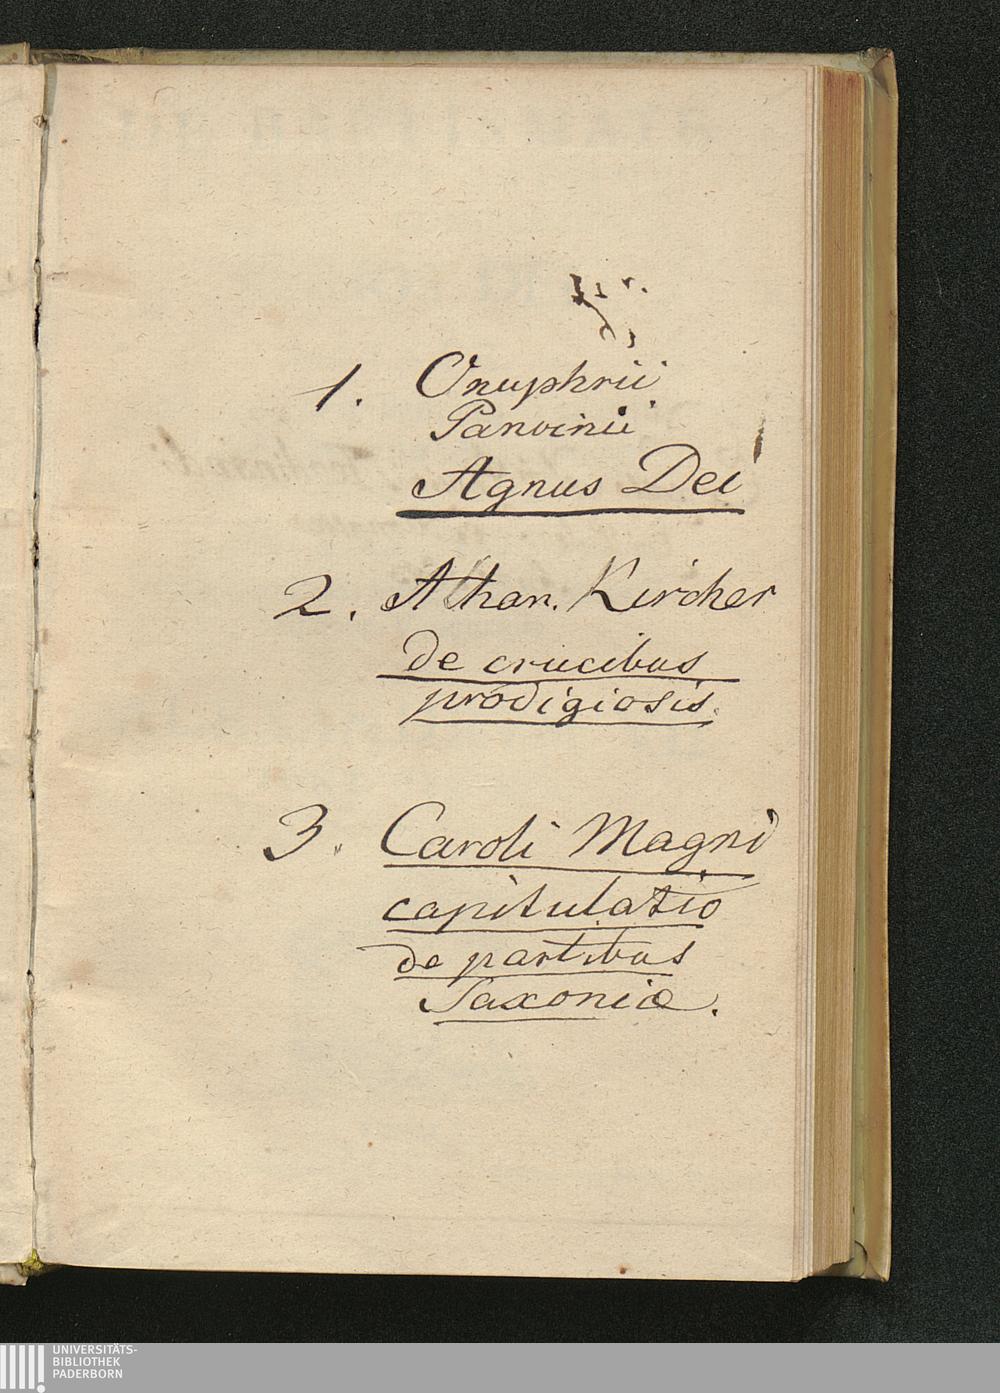 1. Onuphrii
Panvinii
Agnus Dei
2. Athan. Kircher
de crucibus
prodigiosis.
3. Caroli Magni
capitulatio
de partibus
Saxoniae.
UNIVERSITÄTS-
BIBLIOTHEK
PADERBORN